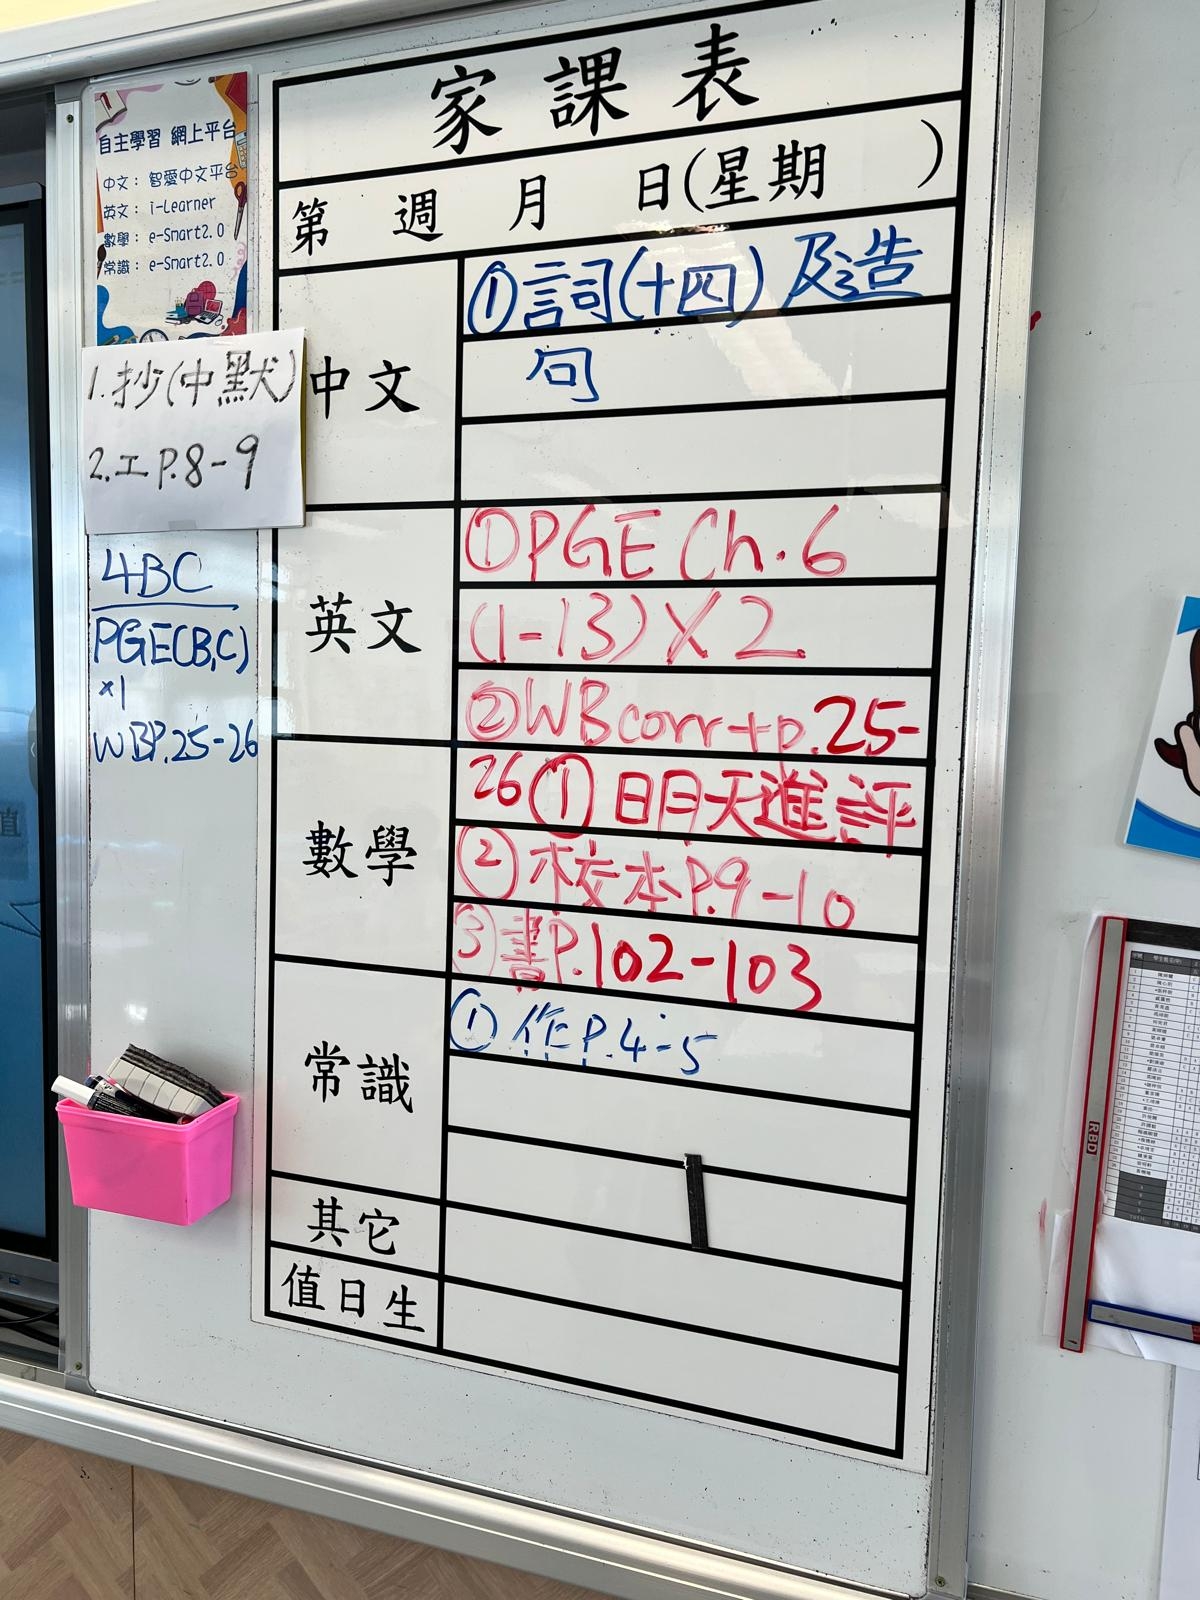 家課表
第 週 月 日(星期 )
中文
①詞(十四)及造
句
英文
①PGE Ch.6
(1-13)×2
②WB corr+p.25-
26
數學
①日日天進評
②校本P.9-10
③書P.102-103
常識
①作P.4-5
其它
值日生
自主學習 網上平台
中文：智愛中文平台
英文：i-Learner
數學：e-Smart2.0
常識：e-Smart2.0
1.抄(中默)
2.工P.8-9
4BC
PGE(B,C)
×1
WBP.25-26
RBD